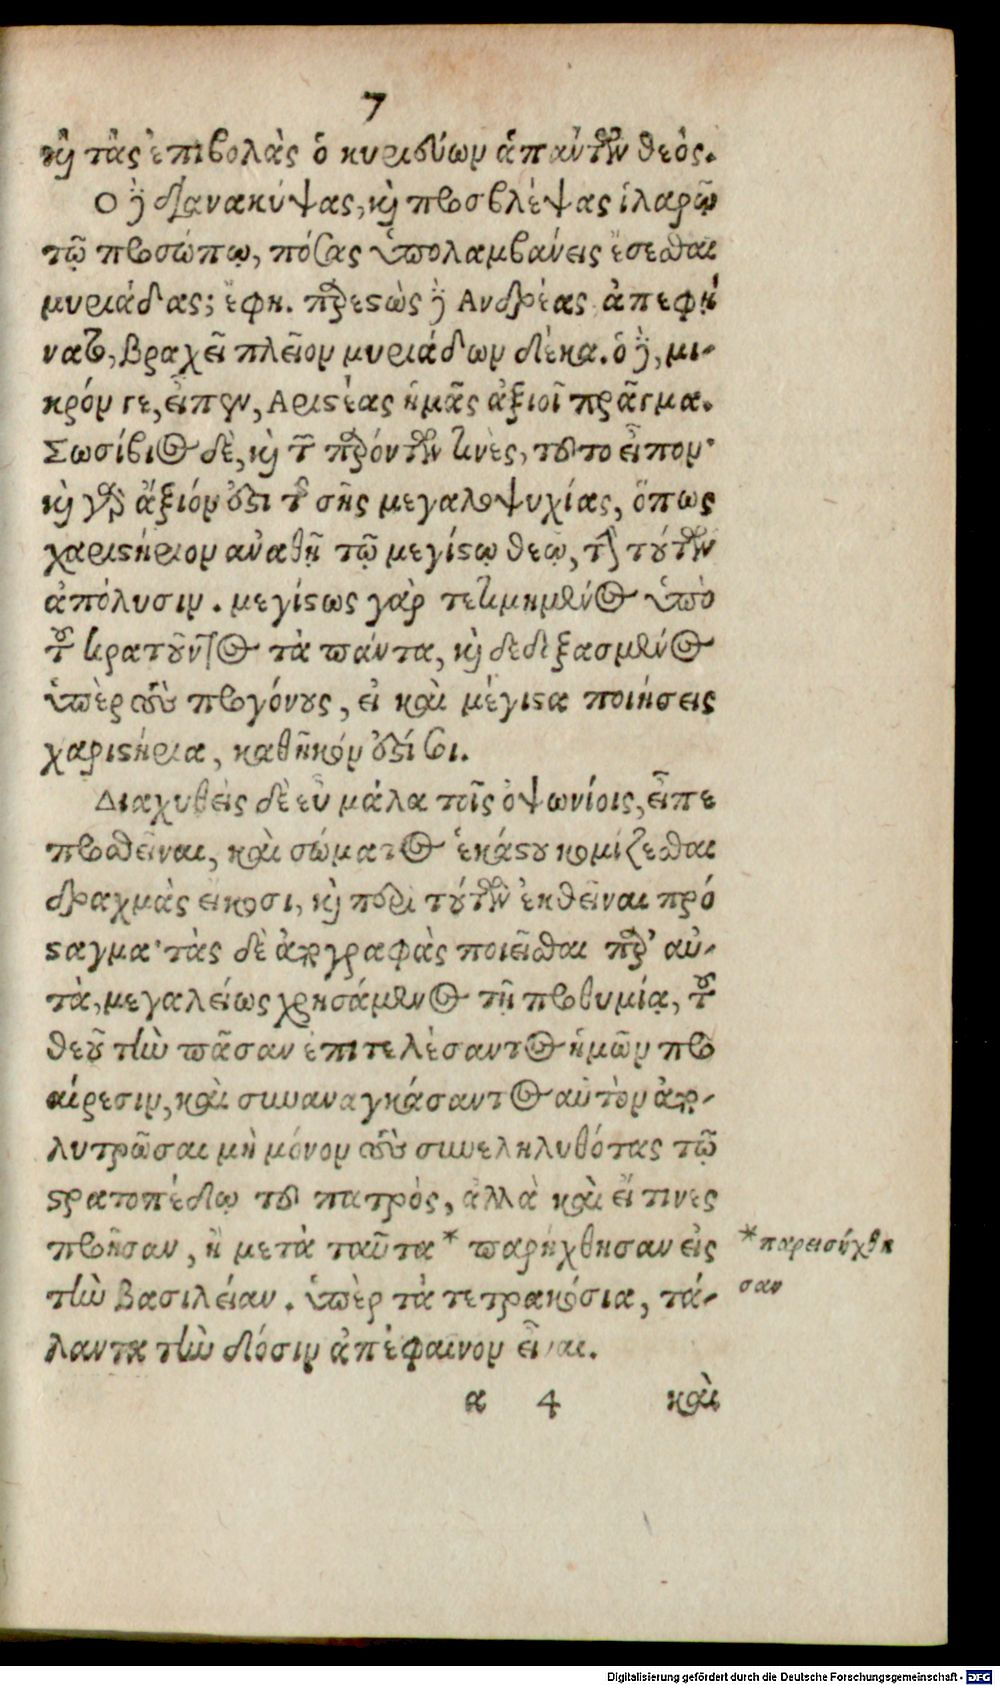 7
καὶ τὰς ἐπιβολὰς ὁ κυριεύων ἁπάντων θεός.
Ο δὲ διανακύψας, καὶ προσβλέψας ἱλαρῷ
τῷ προσώπῳ, πόσας ὑπολαμβάνεις ἔσεσθαι
μυριάδας; ἔφη. παρεστὼς δὲ Ανδρέας ἀπεφή
νατο, βραχεῖ πλεῖον μυριάδων δέκα. ὁ δὲ, μι-
κρόν γε, εἶπεν, Αριστέας ἡμᾶς ἀξιοῖ πρᾶγμα.
Σωσίβιος δὲ, καὶ τῶν παρόντων τινὲς, τοῦτο εἶπον·
καὶ γὰρ ἄξιόν ἐστι τῆς σῆς μεγαλοψυχίας, ὅπως
χαριστήριον ἀναθῇ τῷ μεγίστῳ θεῷ, τὴν τούτων
ἀπόλυσιν. μεγίστως γὰρ τετιμημένος ὑπὸ
τοῦ κρατοῦντος τὰ πάντα, καὶ δεδοξασμένος
ὑπὲρ τοὺς προγόνους, εἰ καὶ μέγιστα ποιήσεις
χαριστήρια, καθῆκόν ἐστί σοι.
Διαχυθεὶς δὲ εὖ μάλα τοῖς ὀψωνίοις, εἶπε
προσθεῖναι, καὶ σώματος ἑκάστου κομίζεσθαι
δραχμὰς εἴκοσι, καὶ περὶ τούτων ἐκθεῖναι πρό
σταγμα· τὰς δὲ ἀπογραφὰς ποιεῖσθαι παρ’ αὐ-
τὰ, μεγαλείως χρησάμενος τῇ προθυμίᾳ, τοῦ
θεοῦ τὴν πᾶσαν ἐπιτελέσαντος ἡμῶν προ
αίρεσιν, καὶ συναναγκάσαντος αὐτὸν ἀπο-
λυτρῶσαι μὴ μόνον τοὺς συνεληλυθότας τῷ
στρατοπέδῳ τοῦ πατρὸς, ἀλλὰ καὶ εἴ τινες
προῆσαν, ἢ μετὰ ταῦτα * παρήχθησαν εἰς
τὴν βασιλείαν. ὑπὲρ τὰ τετρακόσια, τά-
λαντα τὴν δόσιν ἀπέφαινον εἶναι.
* παρεισήχθη
σαν
α 4 καὶ
Digitalisierung gefördert durch die Deutsche Forschungsgemeinschaft - DFG